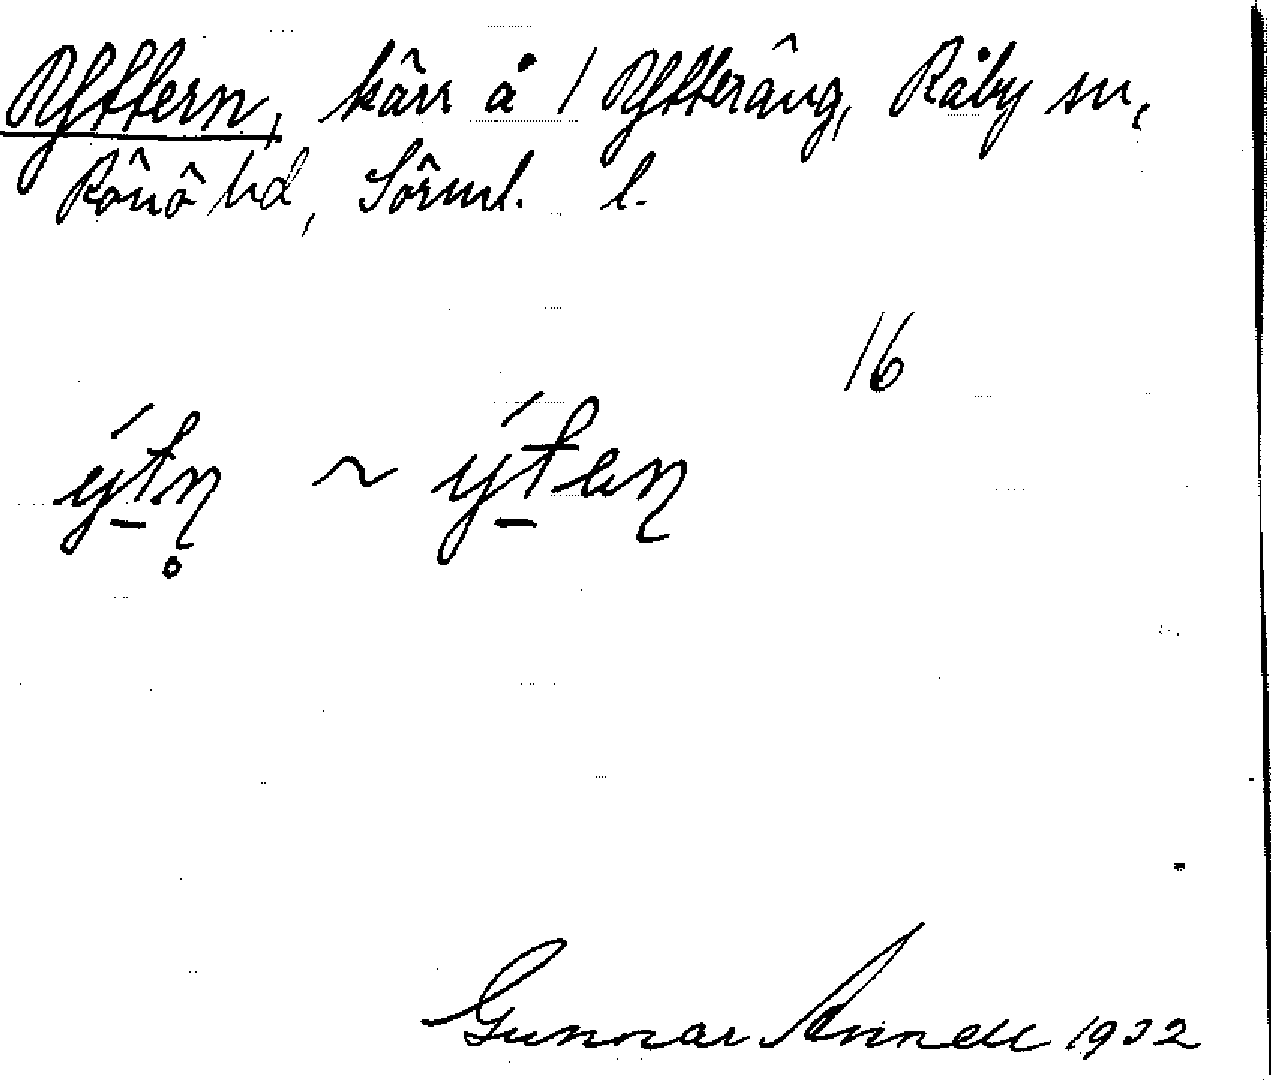 Yttern, kärr å 1 Ytteräng, Råby sn,
Rönö hd, Sörml. l.
16
ýtn̥ ~ ýten
Gunnar Annell 1932